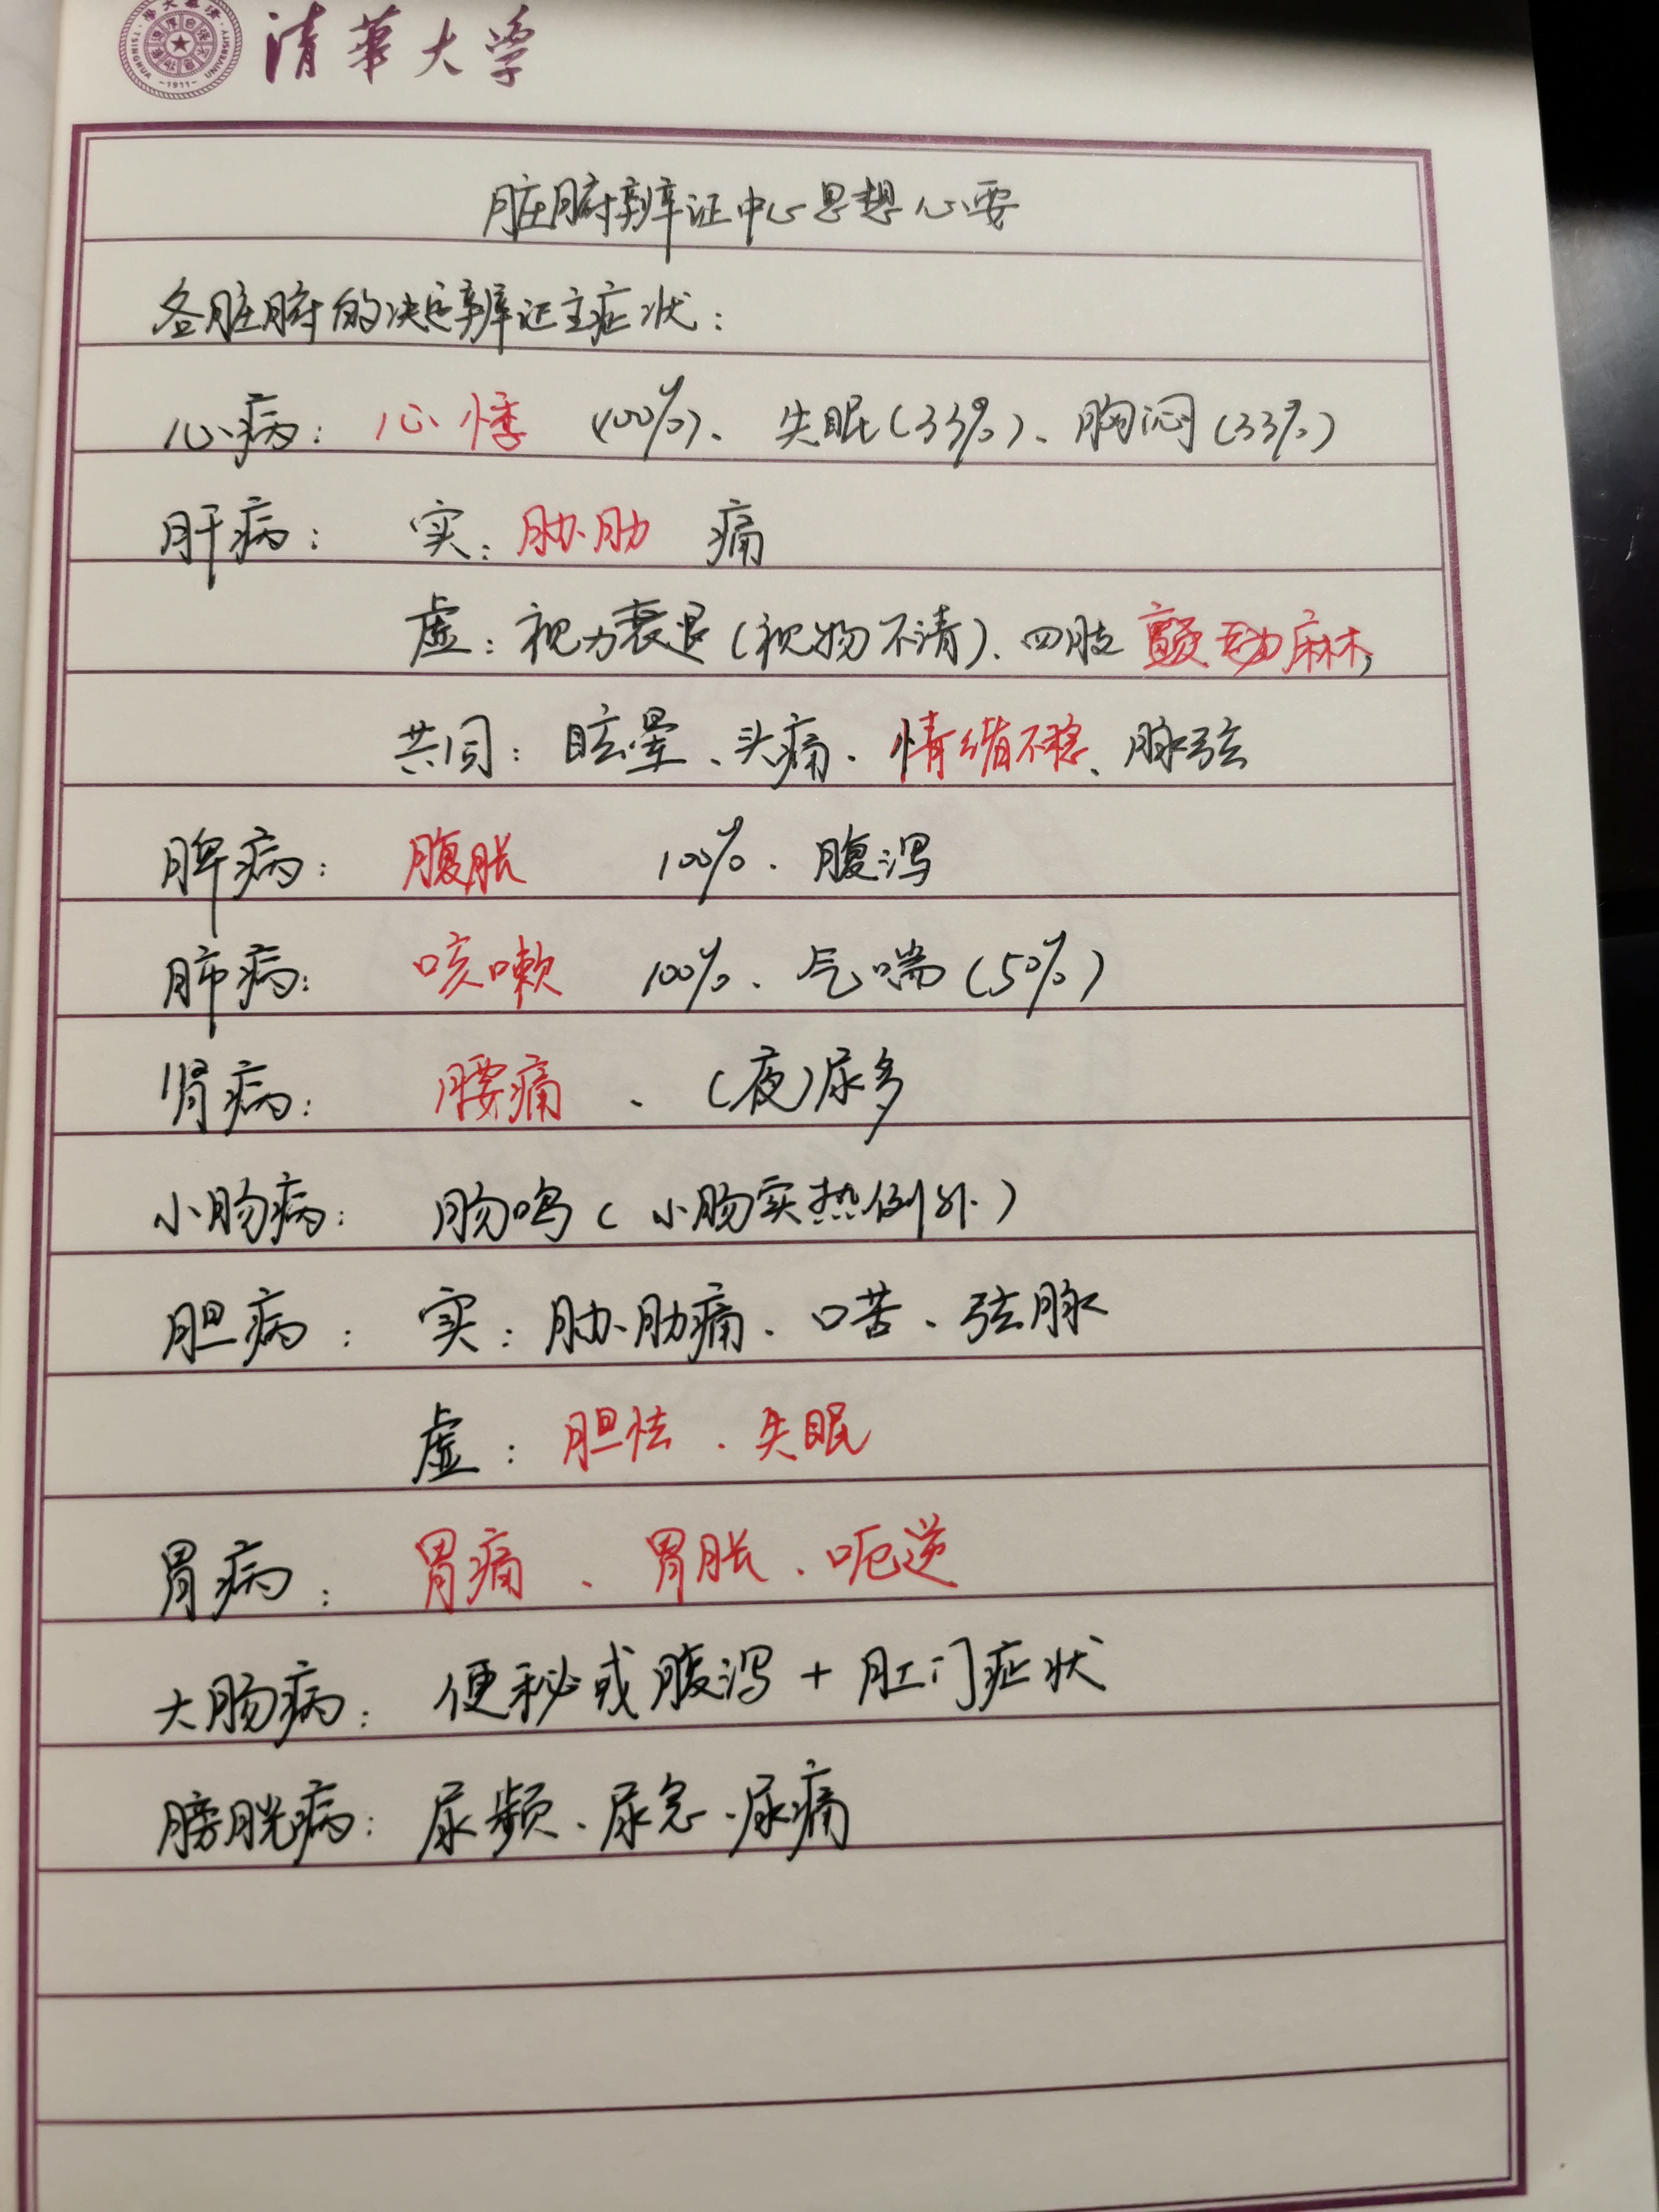 清華大学
TSINGHUA UNIVERSITY
-1911-
脏腑辨证中心思想心要
各脏腑的决定辨证主症状：
心病：心悸（100%）、失眠（33%）、胸闷（33%）
肝病：实：胁肋痛
虚：视力衰退（视物不清）、四肢颤动麻木，
共同：眩晕、头痛、情绪不稳、脉弦
脾病：腹胀 100%、腹泻
肺病：咳嗽 100%、气喘（50%）
肾病：腰痛、（夜）尿多
小肠病：肠鸣（小肠实热例外）
胆病：实：胁肋痛、口苦、弦脉
虚：胆怯、失眠
胃病：胃痛、胃胀、呃逆
大肠病：便秘或腹泻＋肛门症状
膀胱病：尿频、尿急、尿痛